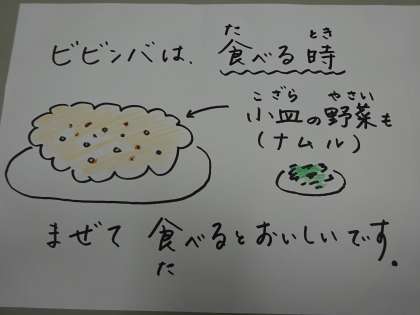 ビビンバは、食べる時
た とき
こざら やさい
小皿の野菜も
(ナムル)
まぜて 食べるとおいしいです。
た